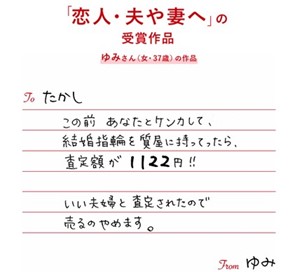 「恋人・夫や妻へ」の
受賞作品
ゆみさん（女・37歳）の作品
To たかし
この前 あなたとケンカして、
結婚指輪を質屋に持ってったら、
査定額が 1122円!!
いい夫婦と査定されたので
売るのやめます。
From ゆみ